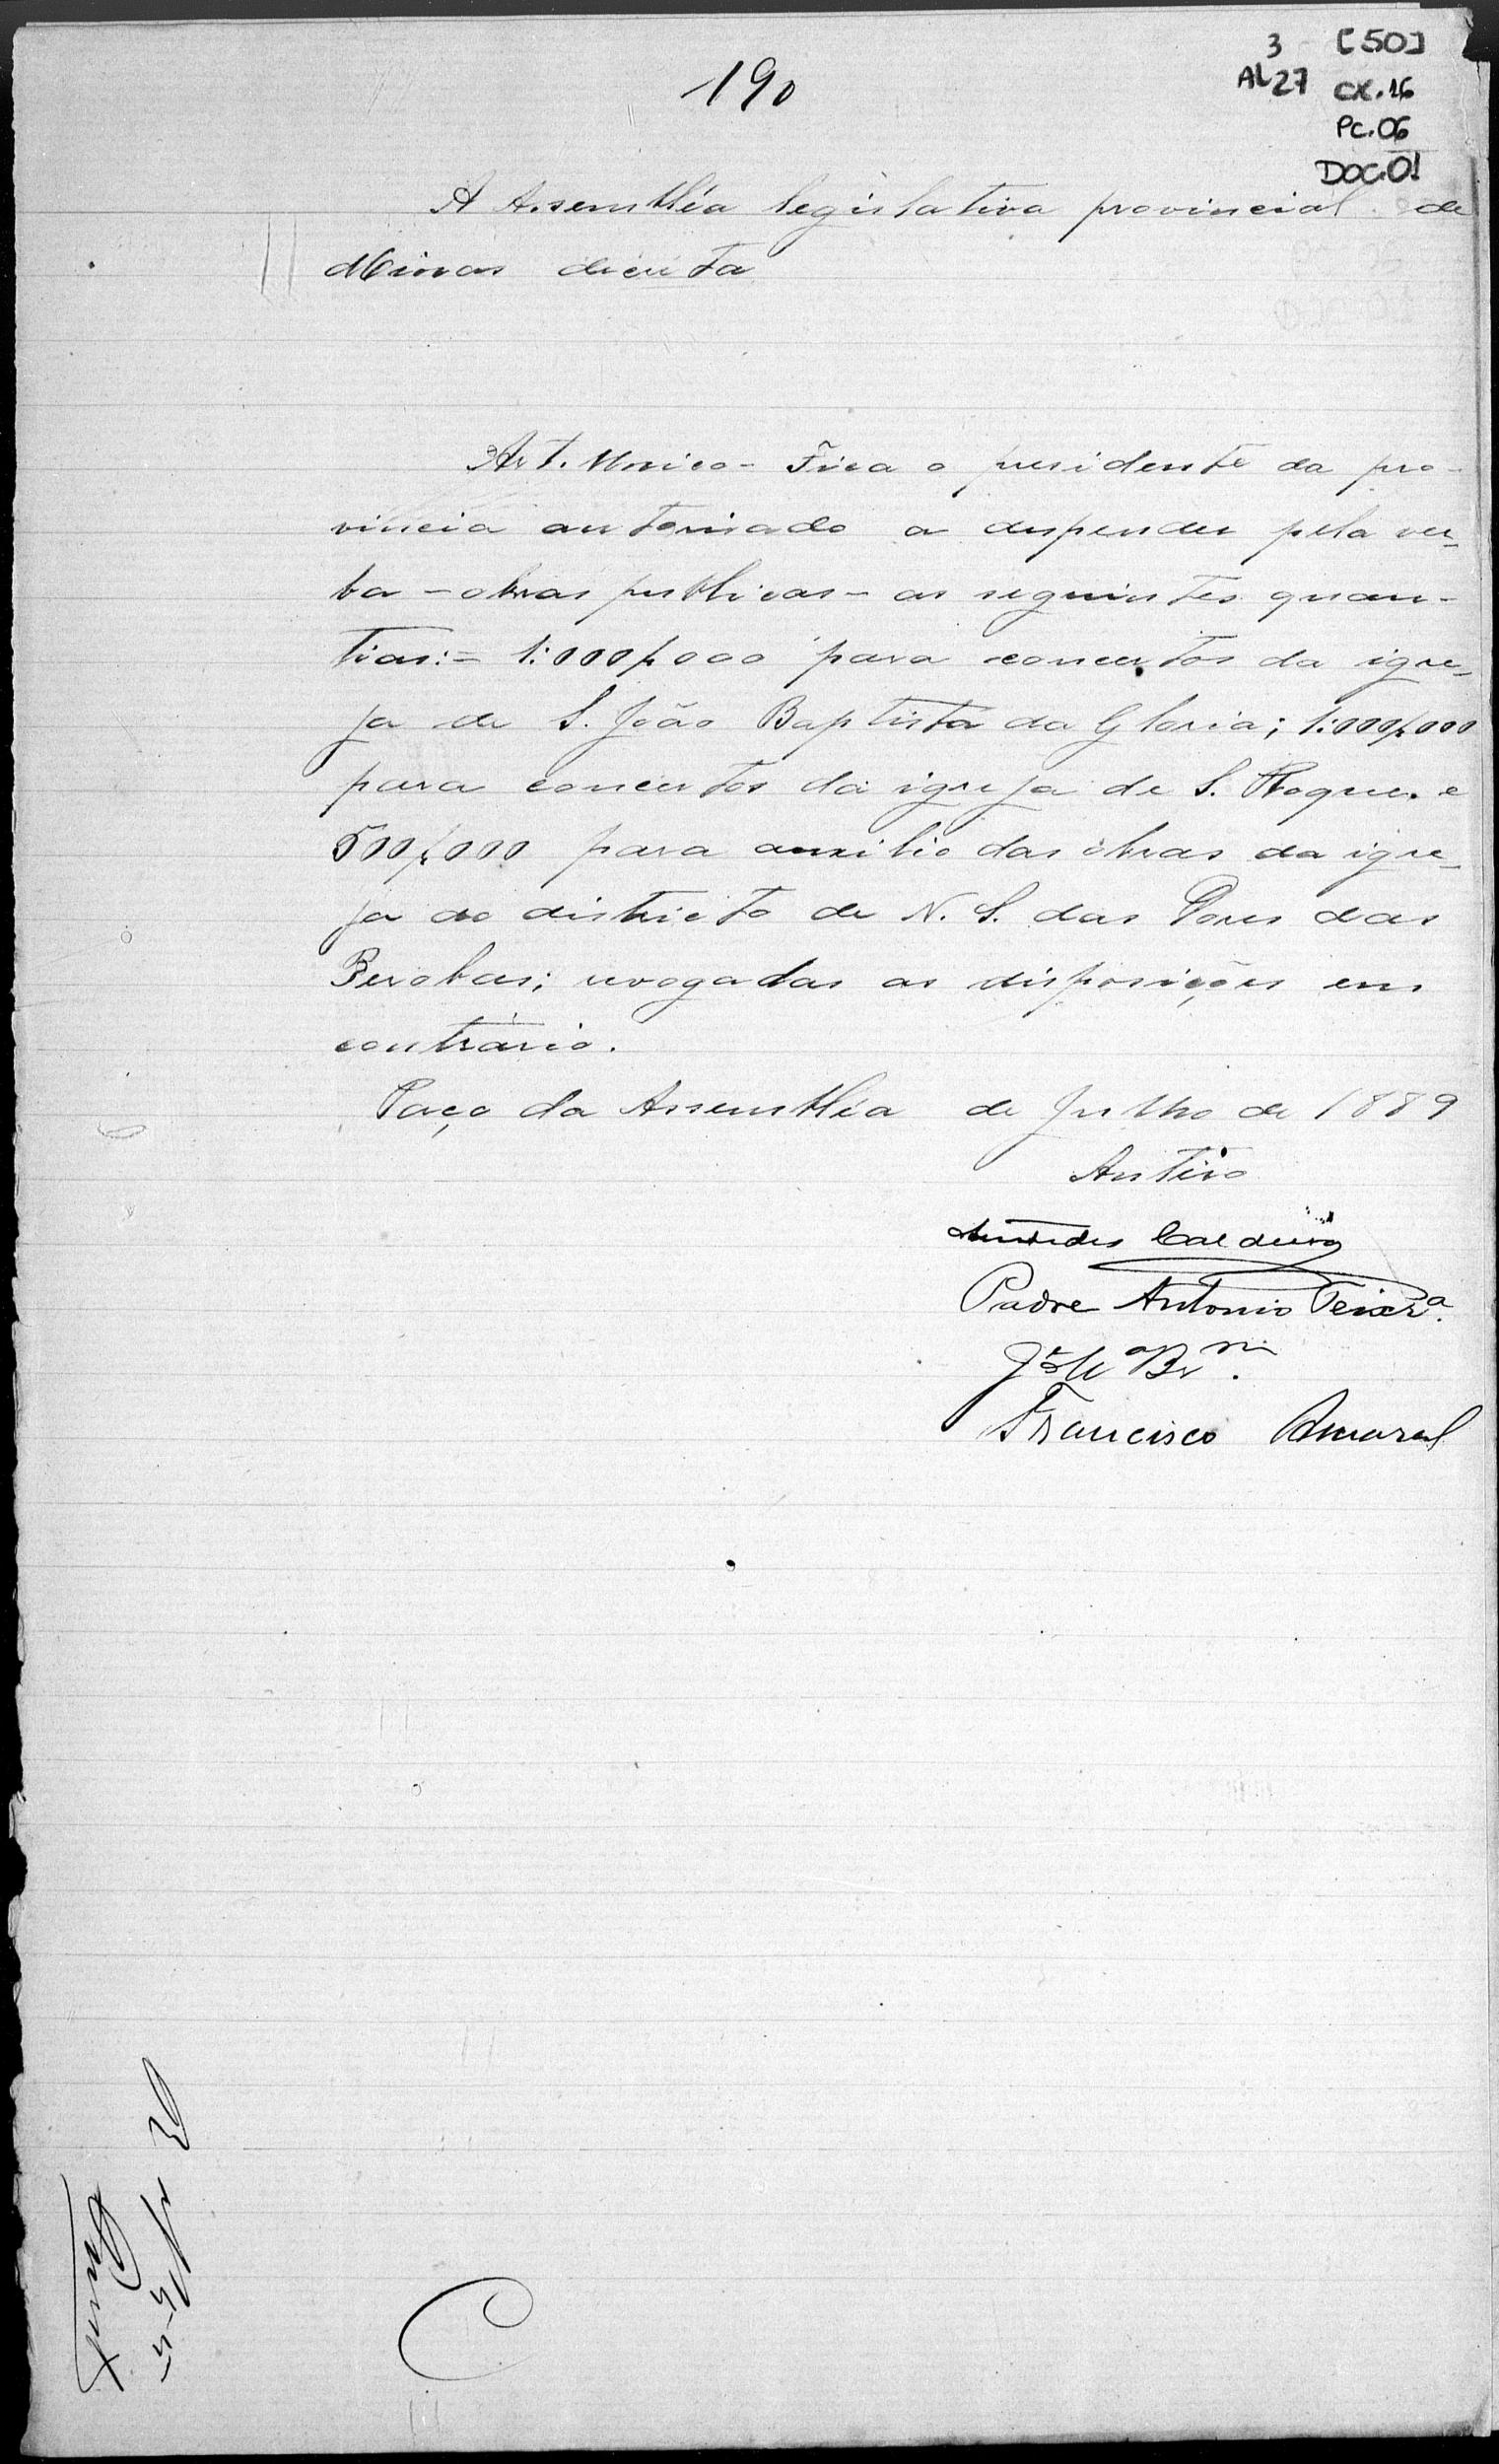 3 [50]
AL27 CX.16
PC.06
DOC.01
190
A Assembléa legislativa provincial de
Minas decreta
Art. Unico - Fica o presidente da pro-
vincia autorisado a despender pela ver-
ba - obras publicas - as seguintes quan-
tias:= 1:000$000 para concertos da igre-
ja de S. João Baptista da Gloria; 1:000$000
para concertos da igreja de S. Roque. e
500$000 para auxilio das obras da igre-
ja do districto de N. S. das Dores das
Perobas; revogadas as disposições em
contrário.
Paço da Assembléa de Julho de 1889
Antero
Caldeira
Padre Antonio Teixrª.
Francisco Amaral
C